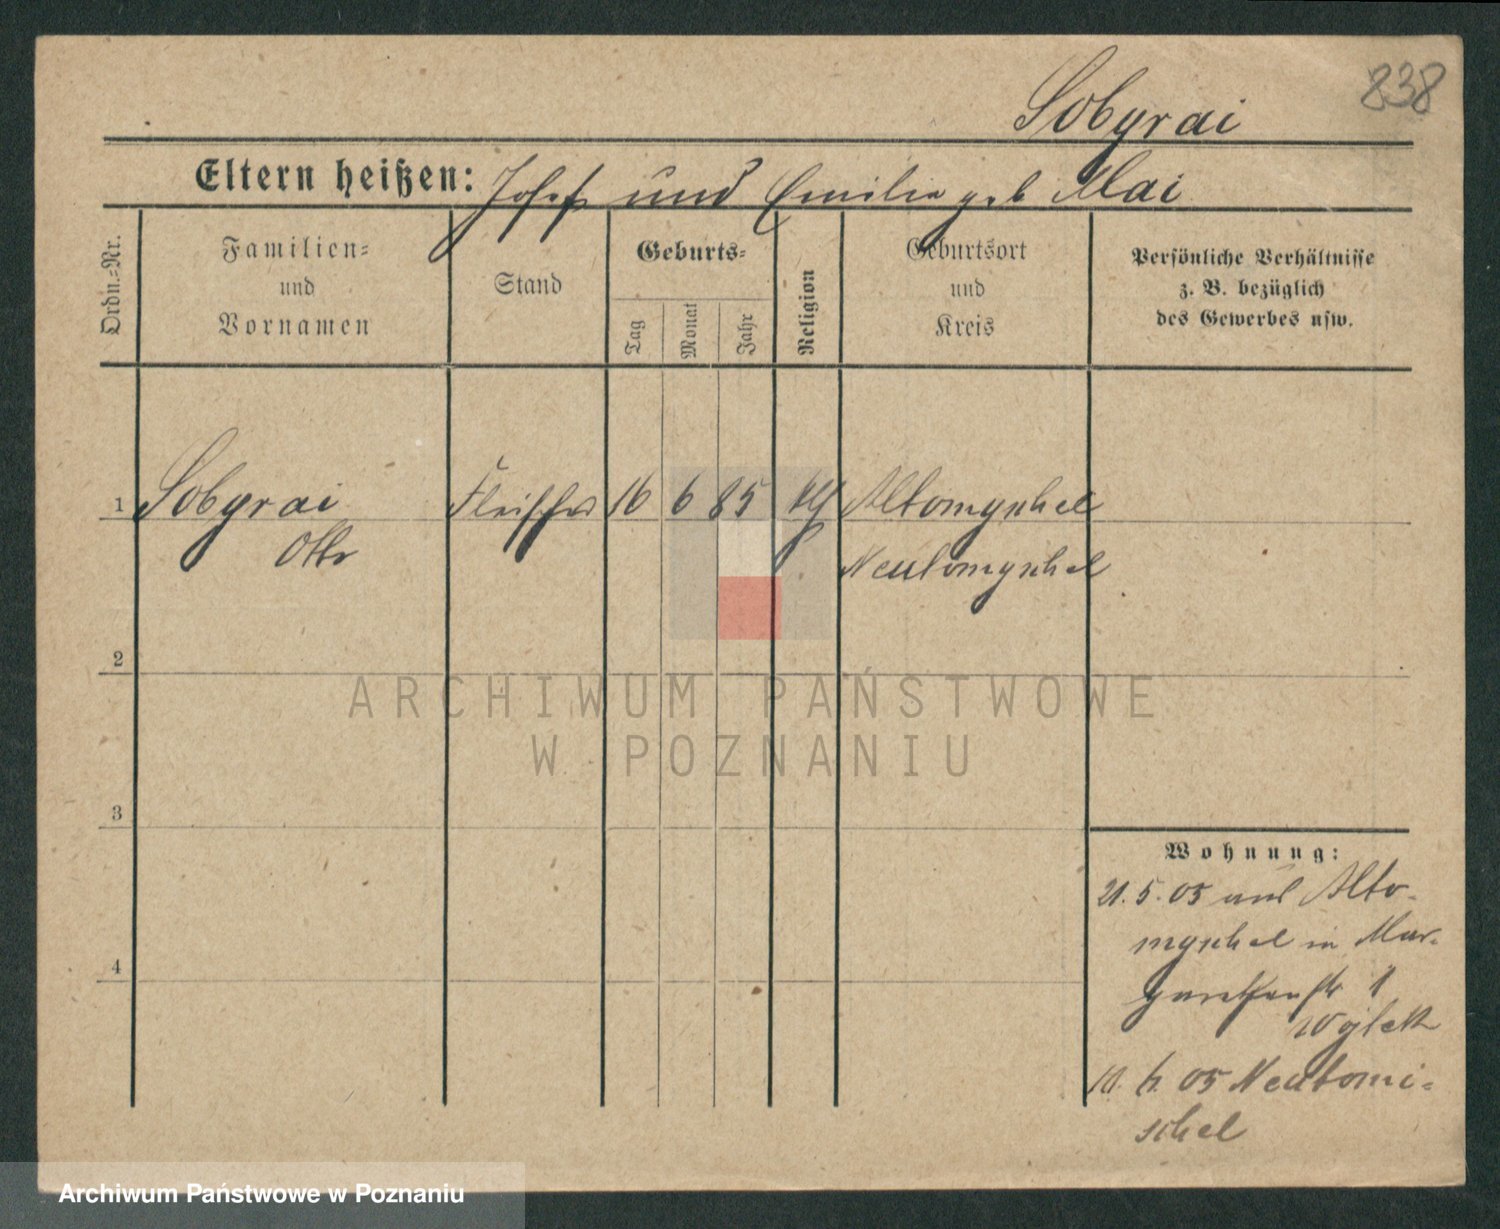 838
Sobyrai
Eltern heißen: Josef und Emilie geb Mai
Ordn.=Nr.
Familien=
und
Vornamen
Stand
Geburts=
Tag
Monat
Jahr
Religion
Geburtsort
und
Kreis
Persönliche Verhältnisse
z. B. bezüglich
des Gewerbes usw.
1 Sobyrai Fleischer 16 6 85 Altomyschel
Otto Neutomyschel
2
3
4
Wohnung:
21. 5. 05 aus Alto-
myschel in Mar-
garethenstr 1
10. 05 Neutomi=
schel
ARCHIWUM PAŃSTWOWE
W POZNANIU
Archiwum Państwowe w Poznaniu